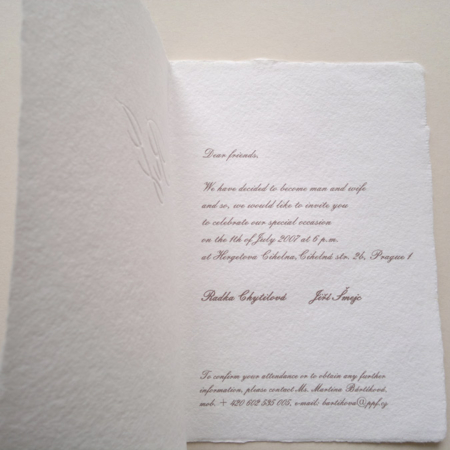 Dear friends,
We have decided to become man and wife
and so, we would like to invite you
to celebrate our special occasion
on the 11th of July 2007 at 6 p.m.
at Hergetova Cihelna, Cihelná str. 2b, Prague 1
Radka Chytilová Jiří Šmejc
To confirm your attendance or to obtain any further
information, please contact Ms. Martina Bártíková,
mob. + 420 602 535 005, e-mail: bartikova@ppf.cz